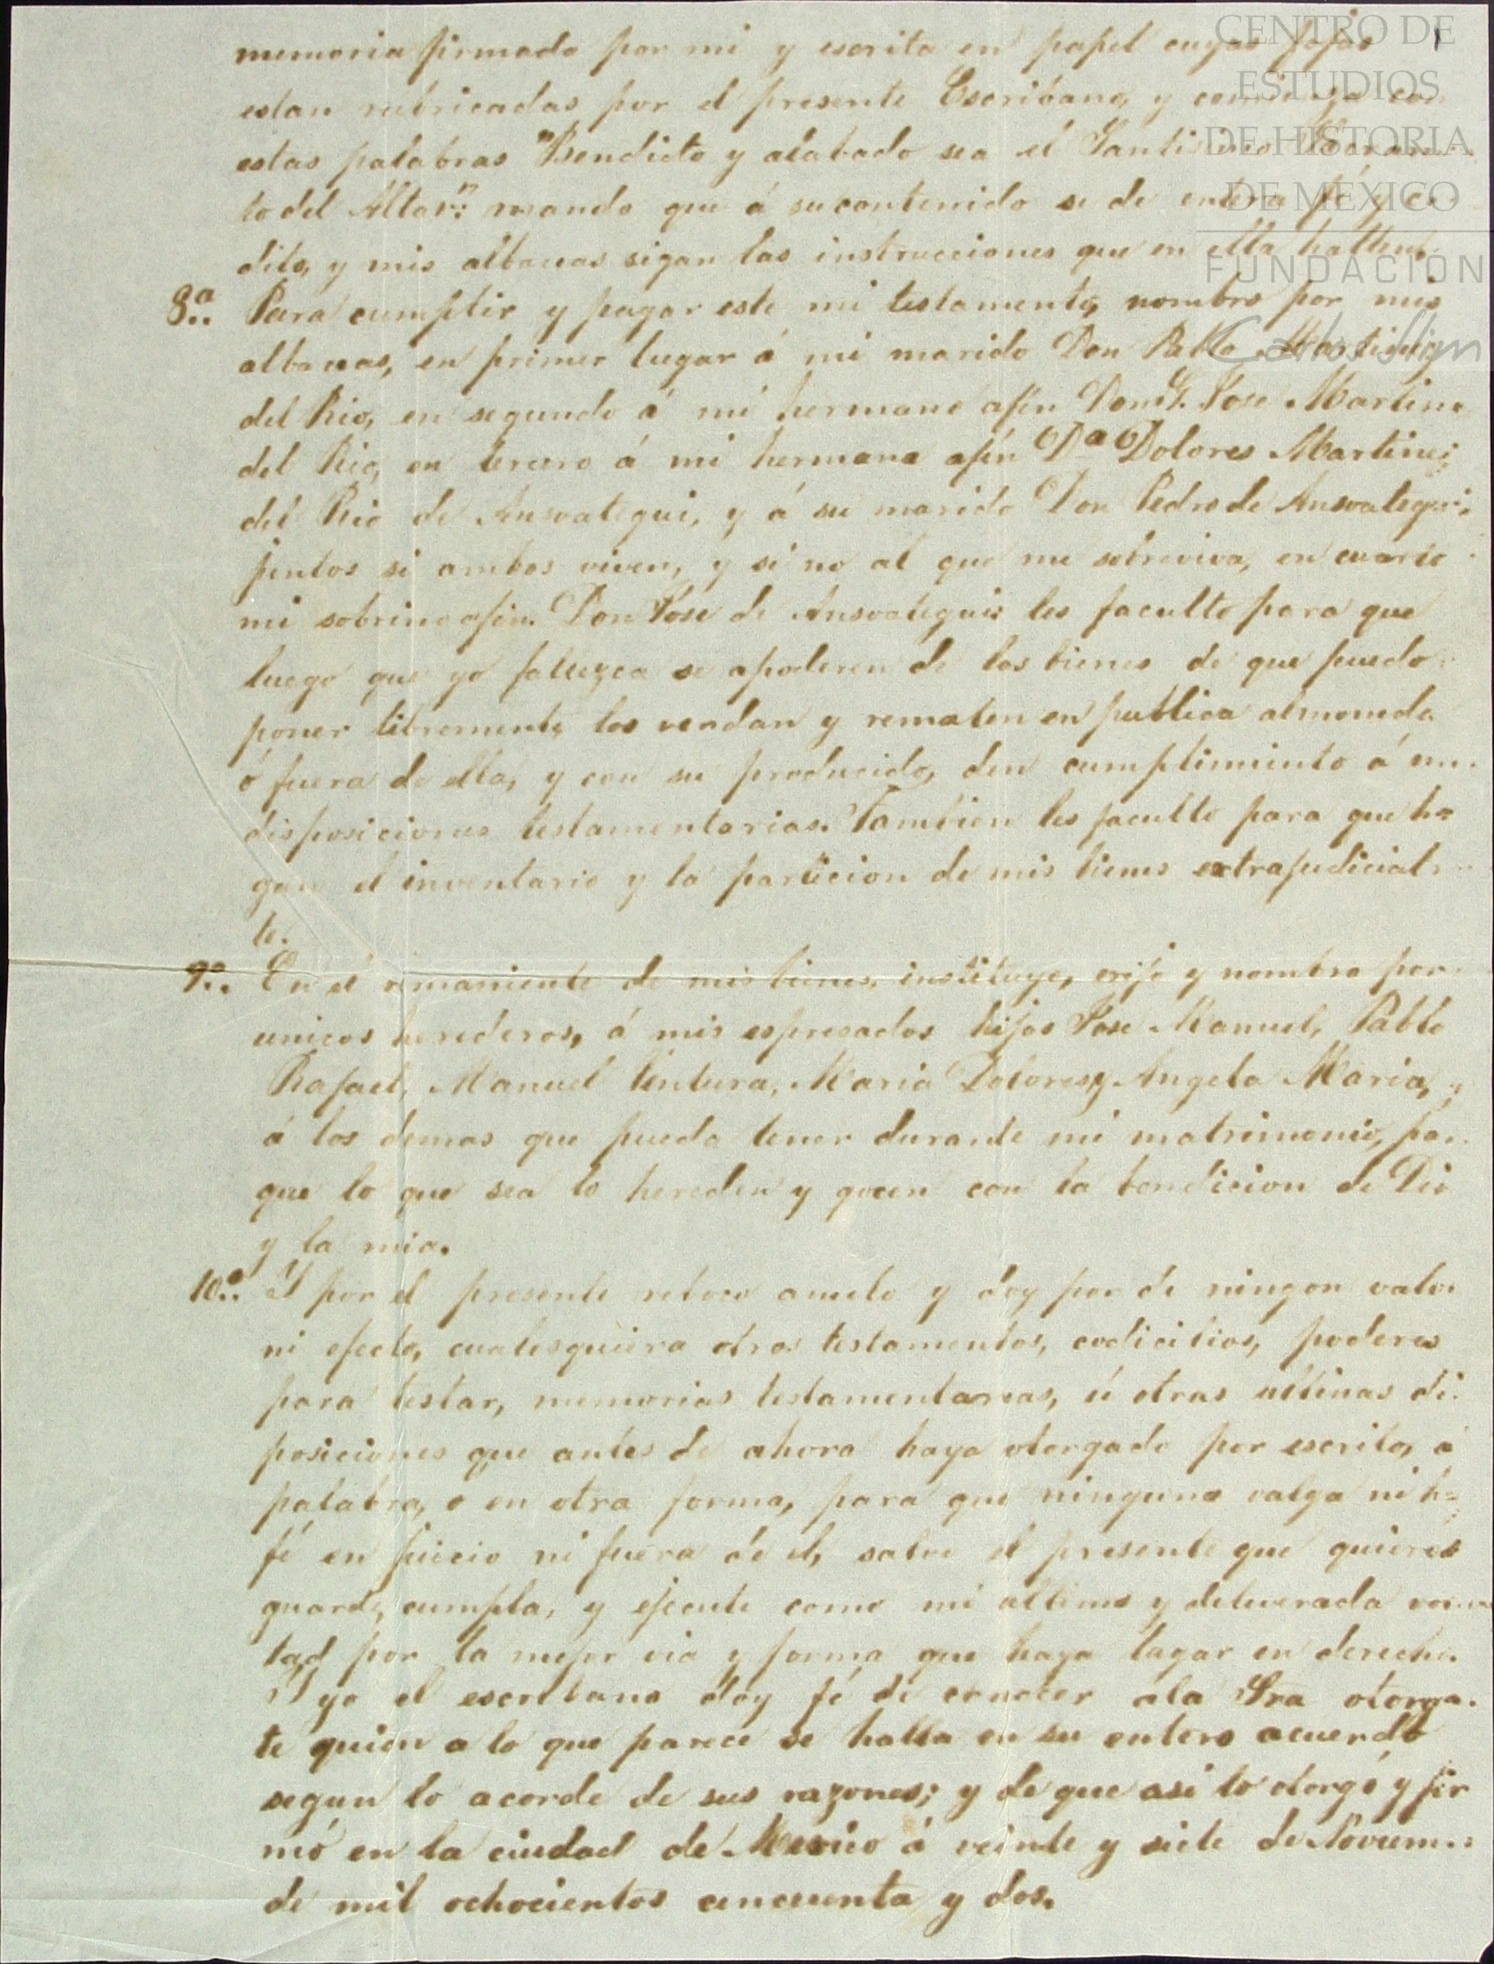 CENTRO DE
ESTUDIOS
DE HISTORIA
DE MÉXICO
FUNDACIÓN
Carlos Slim
memoria firmada por mi y escrita en papel cuyas fojas
estan rubricadas por el presente Escribano, y con
estas palabras "Bendito y alabado sea el Santisimo
to del Altar": mando que á su contenido se de entera fé y
dito, y mis albaceas sigan las instrucciones que en ella hallen.
8.ª Para cumplir y pagar este mi testamento, nombro por mis
albaceas, en primer lugar á mi marido Don Pablo Martinez
del Rio, en segundo á mi hermano afin Don G. Jose Martine
del Rio, en tercero á mi hermana afin Da Dolores Martinez
del Rio de Ansoategui, y á su marido Don Pedro de Ansoategui,
juntos si ambos viven, y si no al que me sobreviva, en cuarto
mi sobrino afin Don Jose de Ansoategui: les faculto para que
luego que yo fallezca se apoderen de los bienes de que puedo
poner libremente, los vendan y rematen en publica almoneda
ó fuera de ella, y con su producido, den cumplimiento á
disposiciones testamentarias. Tambien les faculto para que ha
gan el inventario y la particion de mis bienes extrajudicial
te.
9.ª En el remaniente de mis bienes, instituyo, erijo y nombro por
unicos herederos, á mis espresados hijos Jose Manuel, Pablo
Rafael, Manuel Ventura, Maria Dolores, y Angela Maria, y
á los demas que pueda tener durante mi matrimonio, pa
que lo que sea lo hereden y gocen con la bendicion de Dio
y la mia.
10.ª Y por el presente reboco anulo y doy por de ningon valor
ni efecto, cualesquiera otros testamentos, codicilios, poderes
para testar, memorias testamentareas, ú otras ultimas di
posiciones que antes de ahora haya otorgado por escrito, á
palabra, o en otra forma, para que ninguna valga ni h
fé en juicio ni fuera de el, salvo el presente que quiero se
guarde, cumpla, y ejecute como mi ultima y deliverada
tad por la mejor via y forma que haya lugar en derecho.
Y yo el escribano doy fé de conocer ála Sra otorga
te quien a lo que parece se halla en su entero acuerdo
segun lo acorde de sus razones; y de que asi lo otorgó y fir
mó en la ciudad de Mexico á veinte y siete de Noviem
de mil ochocientos cincuenta y dos.